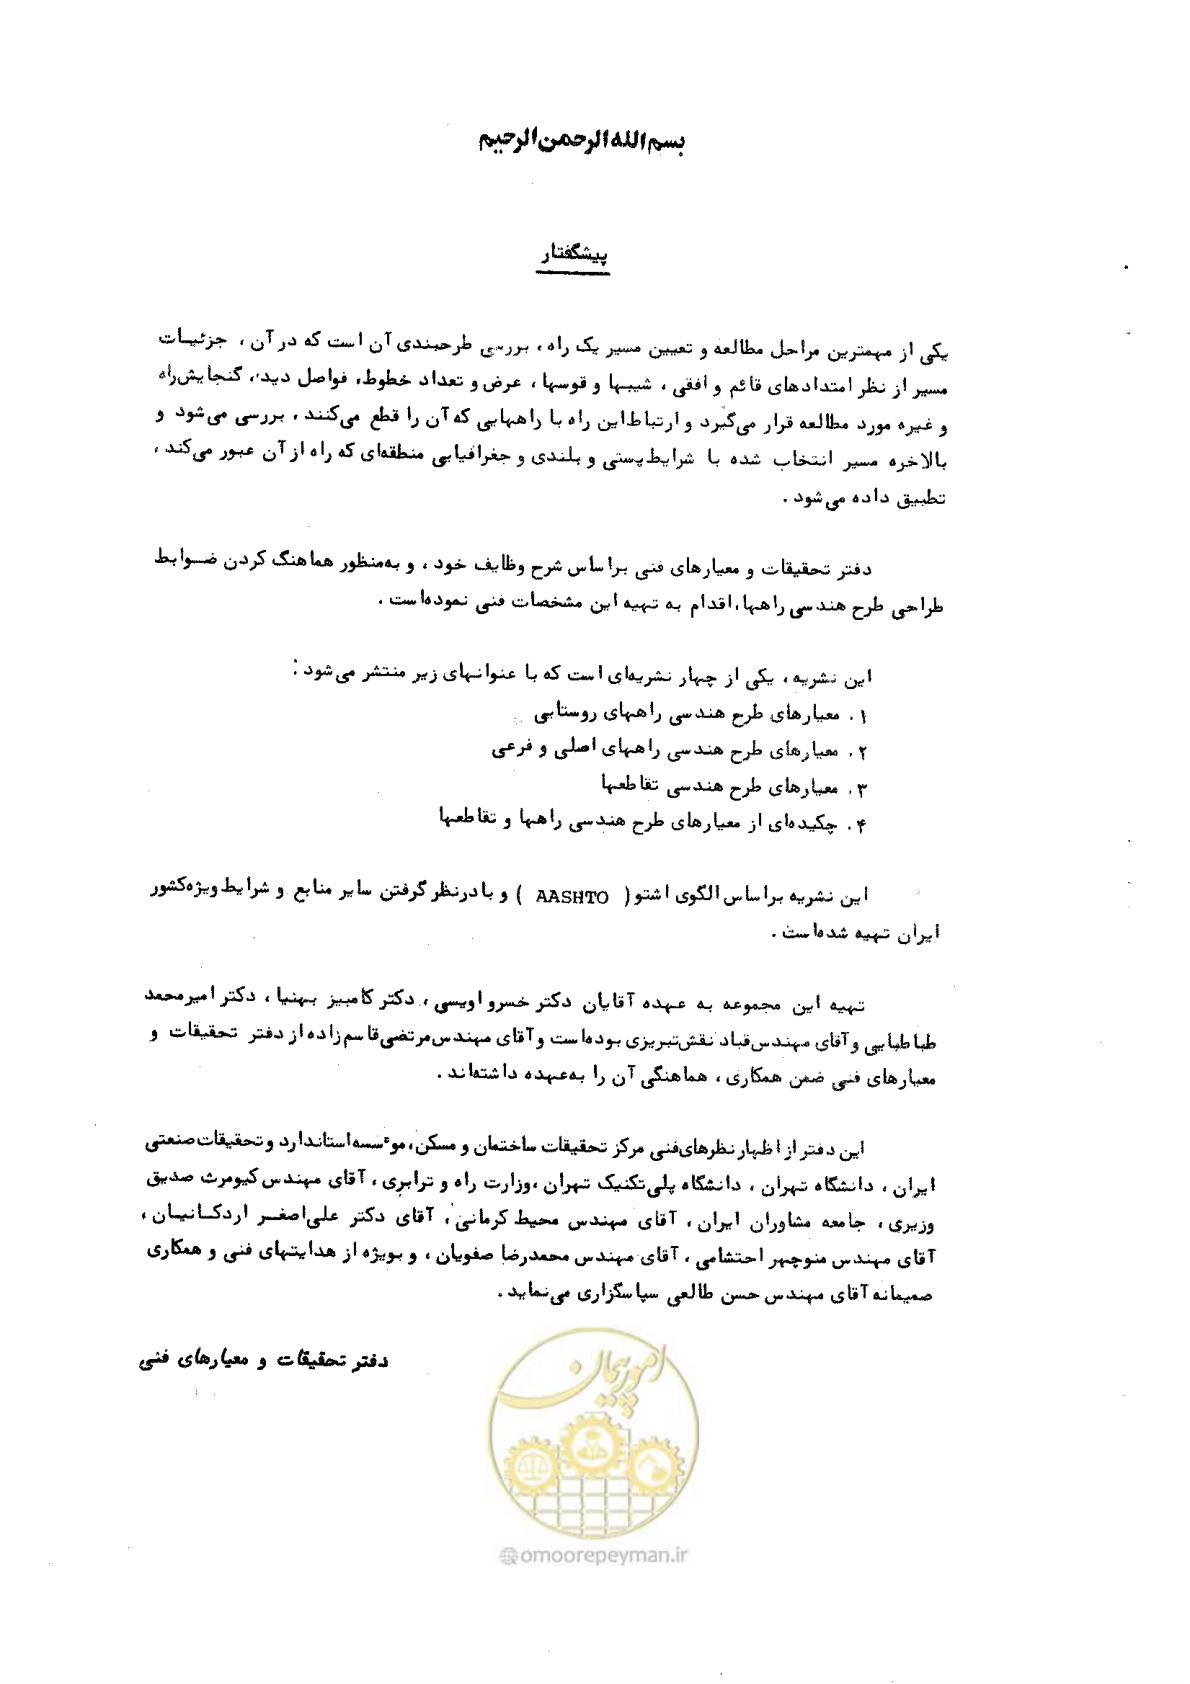 بسم الله الرحمن الرحیم
پیشگفتار
یکی از مهمترین مراحل مطالعه و تعیین مسیر یک راه، بررسی طرحبندی آن است که در آن، جزئیات
مسیر از نظر امتدادهای قائم و افقی، شیبها و قوسها، عرض و تعداد خطوط، فواصل دید، گنجایش راه
و غیره مورد مطالعه قرار می‌گیرد و ارتباط این راه با راههایی که آن را قطع می‌کنند، بررسی می‌شود و
بالاخره مسیر انتخاب شده با شرایط پستی و بلندی و جغرافیایی منطقه‌ای که راه از آن عبور می‌کند،
تطبیق داده می‌شود.
دفتر تحقیقات و معیارهای فنی براساس شرح وظایف خود، و به‌منظور هماهنگ کردن ضوابط
طراحی طرح هندسی راهها، اقدام به تهیه این مشخصات فنی نموده‌است.
این نشریه، یکی از چهار نشریه‌ای است که با عنوانهای زیر منتشر می‌شود:
۱. معیارهای طرح هندسی راههای روستایی
۲. معیارهای طرح هندسی راههای اصلی و فرعی
۳. معیارهای طرح هندسی تقاطعها
۴. چکیده‌ای از معیارهای طرح هندسی راهها و تقاطعها
این نشریه براساس الگوی اشتو ( AASHTO ) و با درنظر گرفتن سایر منابع و شرایط ویژه‌کشور
ایران تهیه شده‌است.
تهیه این مجموعه به عهده آقایان دکتر خسرو اویسی، دکتر کامبیز بهنیا، دکتر امیرمحمد
طباطبایی و آقای مهندس قباد نقش‌تبریزی بوده‌است و آقای مهندس مرتضی قاسم‌زاده از دفتر تحقیقات و
معیارهای فنی ضمن همکاری، هماهنگی آن را به‌عهده داشته‌اند.
این دفتر از اظهارنظرهای‌فنی مرکز تحقیقات ساختمان و مسکن، موٴسسه استاندارد و تحقیقات صنعتی
ایران، دانشگاه تهران، دانشگاه پلی‌تکنیک تهران، وزارت راه و ترابری، آقای مهندس کیومرث صدیق
وزیری، جامعه مشاوران ایران، آقای مهندس محیط کرمانی، آقای دکتر علی‌اصغر اردکانیان،
آقای مهندس منوچهر احتشامی، آقای مهندس محمدرضا صفویان، و بویژه از هدایتهای فنی و همکاری
صمیمانه آقای مهندس حسن طالعی سپاسگزاری می‌نماید.
دفتر تحقیقات و معیارهای فنی
امور پیمان
@omoorepeyman.ir